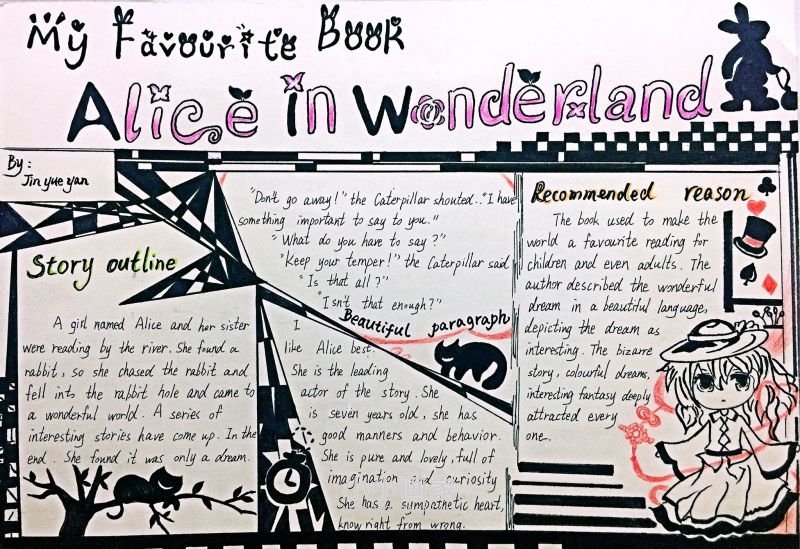 My Favourite Book
Alice in Wonderland
By:
Jin yue yan
Story outline
A girl named Alice and her sister
were reading by the river. She found a
rabbit, so she chased the rabbit and
fell into the rabbit hole and came to
a wonderful world. A series of
interesting stories have come up. In the
end. She found it was only a dream.
"Don't go away!" the Caterpillar shouted.. "I have
something important to say to you."
"What do you have to say?"
"Keep your temper!" the Caterpillar said
"Is that all?"
"Isn't that enough?"
Beautiful paragraph
I
like Alice best.
She is the leading
actor of the story. She
is seven years old, she has
good manners and behavior.
She is pure and lovely, full of
imagination and curiosity
She has a sympathetic heart,
know right from wrong.
Recommended reason
The book used to make the
world a favourite reading for
children and even adults. The
author described the wonderful
dream in a beautiful language,
depicting the dream as
interesting. The bizarre
story, colourful dreams,
interesting fantasy deeply
attracted every
one.